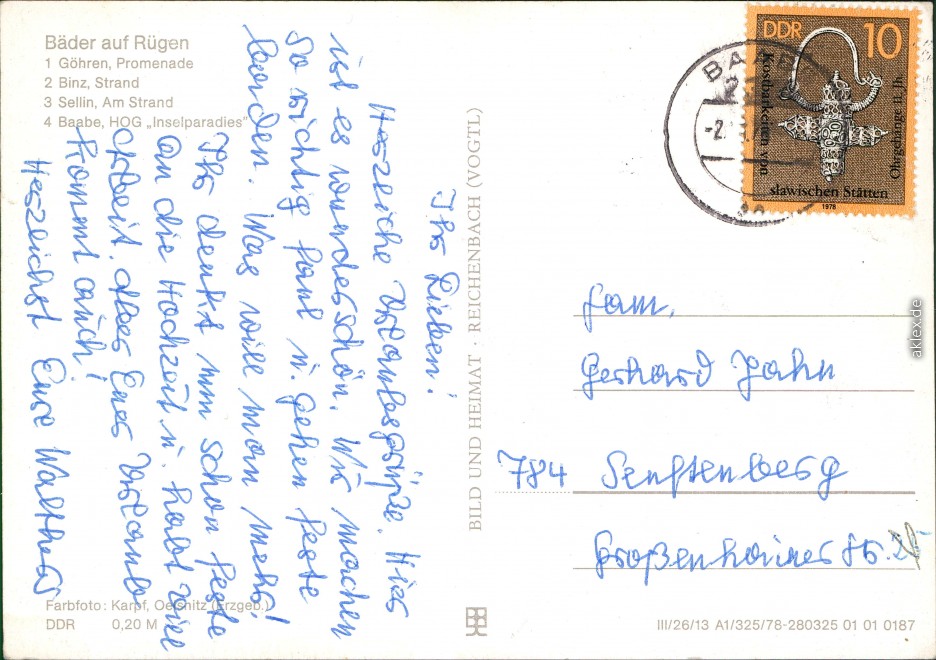 Bäder auf Rügen
1 Göhren, Promenade
2 Binz, Strand
3 Sellin, Am Strand
4 Baabe, HOG „Inselparadies"
Ihr Lieben!
Herzliche Urlaubsgrüße. Hier
ist es wunderschön. Wir machen
so richtig faul u. gehen feste
baden. Was will man mehr!
Ihr denkt nun schon feste
an die Hochzeit u. habt viel
Arbeit. Aber Euer Urlaub
kommt auch!
Herzlichst Eure Walthers
Farbfoto: Karpf, Oelsnitz (Erzgeb.)
DDR 0,20 M
BILD UND HEIMAT · REICHENBACH (VOGTL)
DDR 10
Kostbarkeiten von
slawischen Stätten
Ohrgehänge 11. Jh.
1978
BAABE
-2.
Fam.
Gerhard Jahn
784 Senftenberg
Großenhainer Str.
III/26/13 A1/325/78-280325 01 01 0187
aklex.de